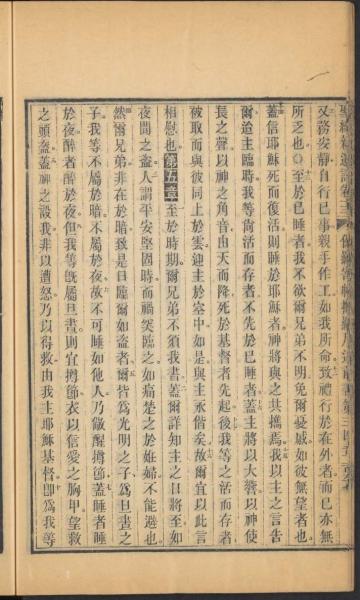 又務安靜自行己事親手作工如我所命致禮行於在外者而己亦無
所乏也○至於已睡者我不欲爾兄弟不明免爾憂慼如彼無望者也
蓋信耶穌死而復活則睡於耶穌者神將與之共擕焉我以主之言告
爾迨主臨時我等尚活而存者不先於已睡者蓋主將以大響以神使
長之聲以神之角音由天而降死於基督者先起後我等之活而存者
被取而與彼同上於雲迎主於空中如是與主永偕矣故爾宜以此言
相慰也第五章至於時期爾兄弟不須我書蓋爾詳知主之日將至如
夜間之盜人謂平安堅固時而禍突臨之如痛楚之於姙婦不能避也
然爾兄弟非在於暗致是日臨爾如盜者爾皆為光明之子為旦晝之
子我等不屬於暗不屬於夜故不可睡如他人乃儆醒撙節蓋睡者睡
於夜醉者醉於夜但我等旣屬旦晝則宜撙節衣以信愛之胸甲望救
之頭盔蓋神之設我非以遭怒乃以得救由我主耶穌基督卽為我等